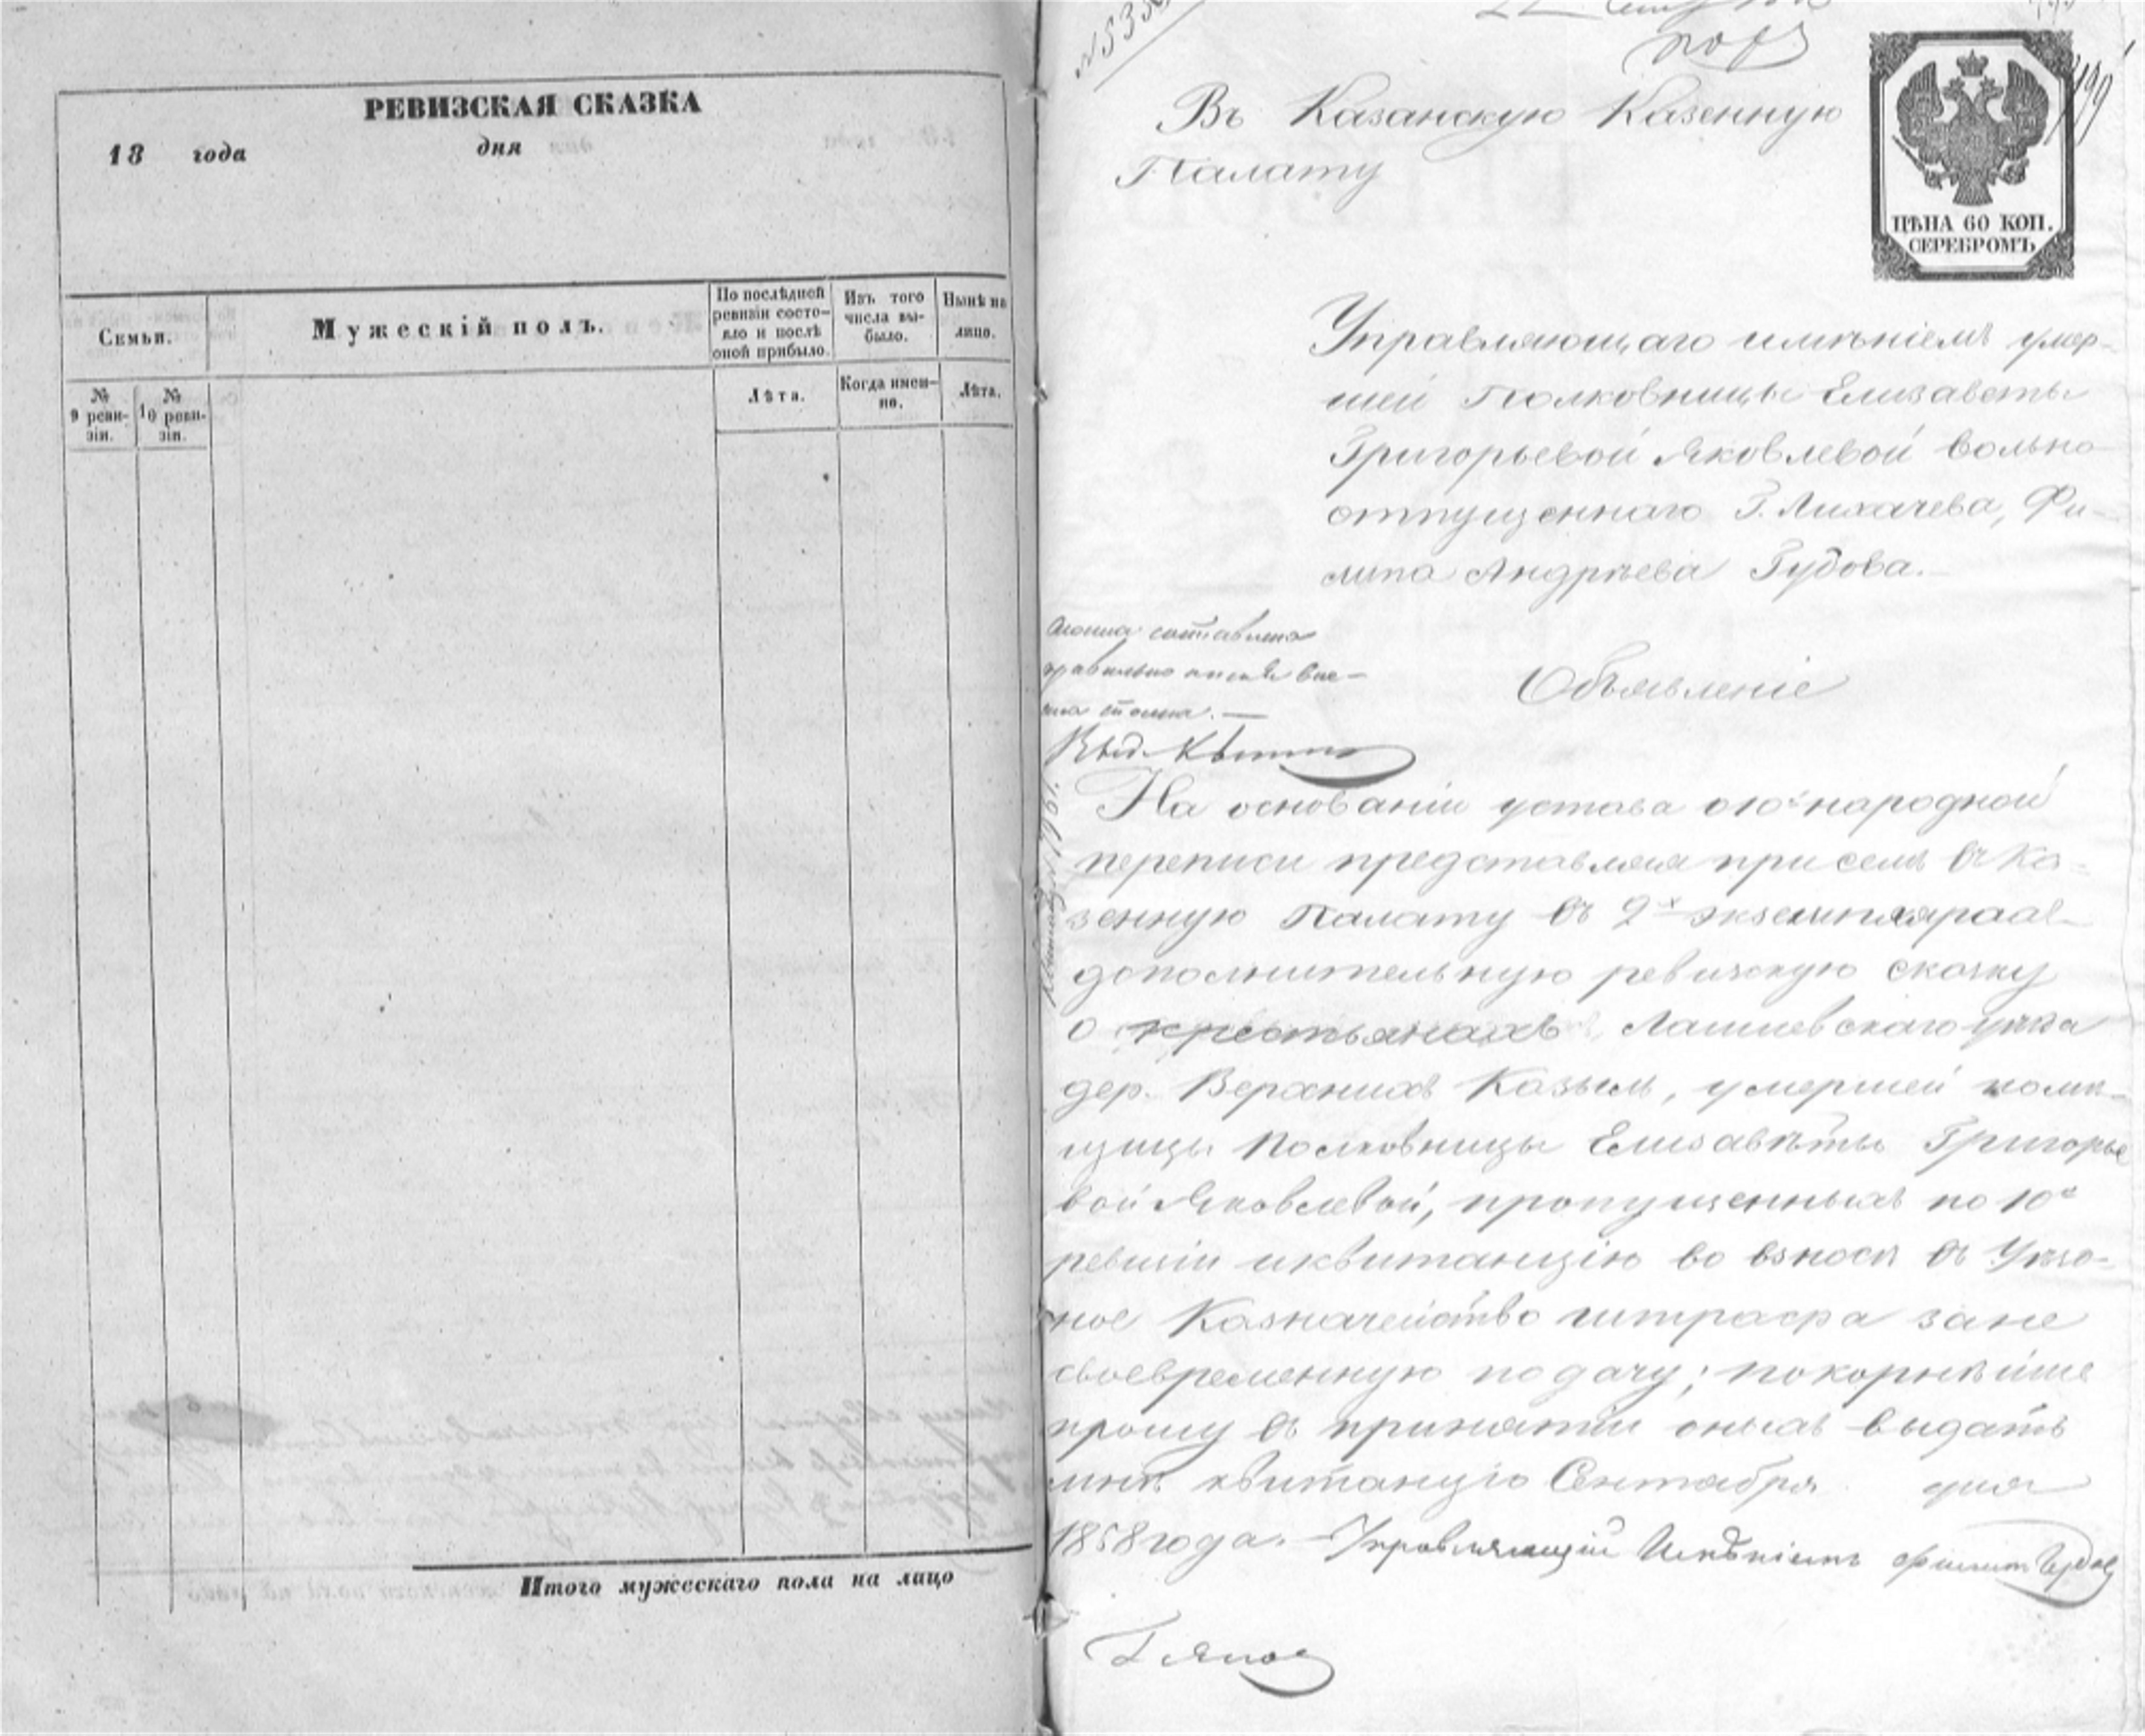 РЕВИЗСКАЯ СКАЗКА
18 года дня
Семьи.
Мужескій полъ.
По послѣдней ревизіи состояло и послѣ оной прибыло.
Изъ того числа выбыло.
Нынѣ на лицо.
№ 9 реви-зіи.
№ 10 реви-зіи.
Лѣта.
Когда имен-но.
Лѣта.
Итого мужескаго пола на лицо
Въ Казанскую Казенную
Палату
ЦѢНА 60 КОП.
СЕРЕБРОМЪ
Управляющаго имѣніемъ умер-
шей Полковницы Елизаветы
Григорьевой Яковлевой вольно
отпущеннаго Г. Лихачева, Фи-
липа Андрѣева Гудова.
Объявленіе
На основаніи устава о 10й народной
переписи представляя при семъ въ Ка-
зенную Палату въ 2х экземплярахъ
дополнительную ревизскую сказку
о крестьянахъ Лаишевскаго уѣзда
дер. Верхнихъ Казыль, умершей помѣ-
щицы Полковницы Елисавѣты Григорье
вой Яковлевой, пропущенныхъ по 10й
ревизіи и квитанцію во взносѣ въ Уѣзд-
ное Казначейство штрафа за не
своевременную подачу; покорнѣйше
прошу въ принятіи оныхъ выдать
мнѣ квитанцію Сентября дня
1858 года. Управляющій Имѣніемъ Филипъ Гудовъ